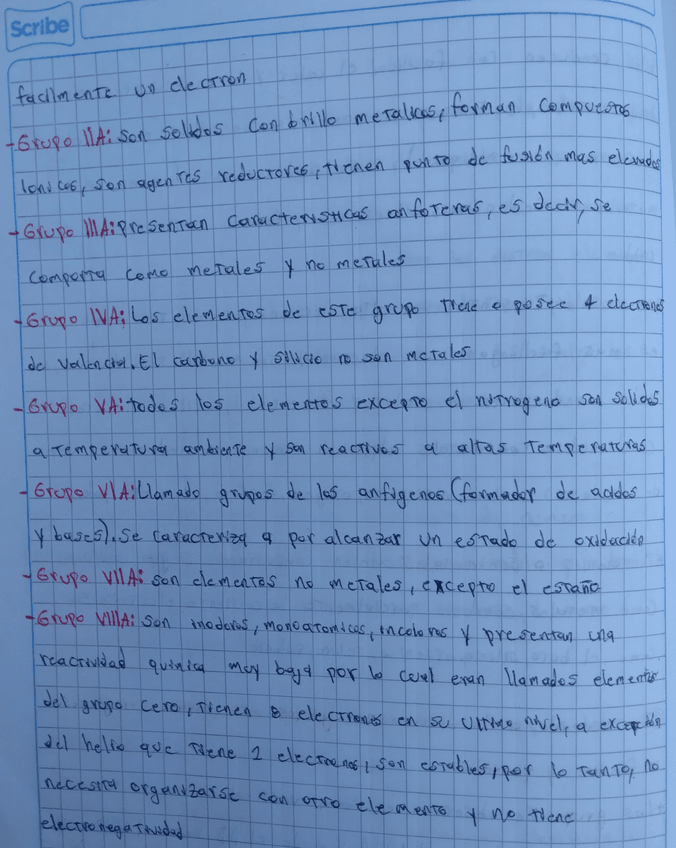 Scribe
facilmente un electron
-Grupo IIA: son solidos con brillo metalicos, forman compuestos
Ionicos, son agentes reductores, tienen punto de fusión mas elevados
-Grupo IIIA: Presentan caracteristicas anfoteras, es decir, se
comporta como metales y no metales
-Grupo IVA: Los elementos de este grupo tiene o posee 4 electrones
de valencia. El carbono y silicio no son metales
-Grupo VA: todos los elementos excepto el nitrogeno son solidos
a temperatura ambiente y son reactivos a altas temperaturas
-Grupo VIA: Llamado grupos de los anfigenos (formador de acidos
y bases). Se caracteriza a por alcanzar un estado de oxidación
-Grupo VIIA: son elementos no metales, excepto el estaño
-Grupo VIIIA: Son inodoros, monoatomicos, incoloros y presentan una
reactividad quimica muy baja por lo cual eran llamados elementos
del grupo cero, tienen 8 electrones en su ultimo nivel, a excepción
del helio que tiene 2 electrones, son estables, por lo tanto, no
necesita organizarse con otro elemento y no tiene
electronegatividad